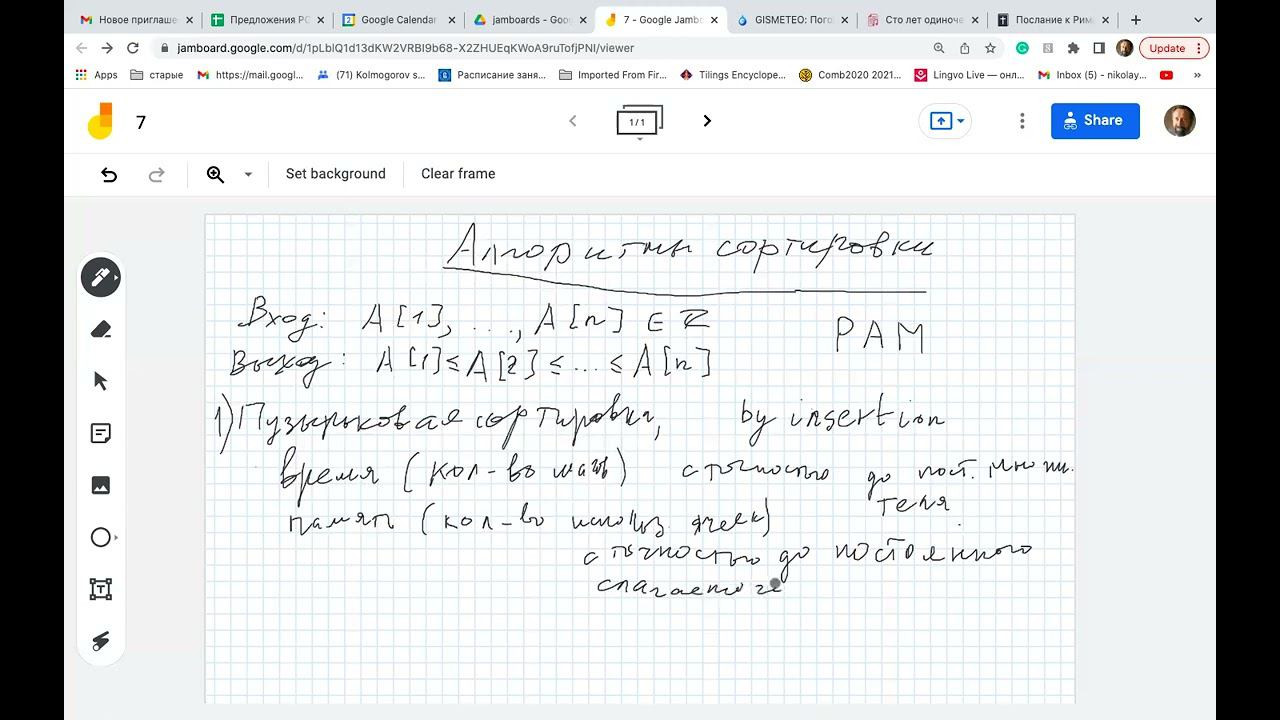 Новое приглаше
Предложения РС
Google Calendar
jamboards - Goo
7 - Google Jambo
GISMETEO: Пого
Сто лет одиноче
Послание к Рим
jamboard.google.com/d/1pLbIQ1d13dKW2VRBIbb68-X2ZHUEqKWoA9ruTofjPNI/viewer
Update
Apps
старые
https://mail.googl...
(71) Kolmogorov s...
Расписание заня...
Imported From Fir...
Tilings Encyclope...
Comb2020 2021...
Lingvo Live — онл...
Inbox (5) - nikolay...
»
7
1/1
Share
Set background
Clear frame
Алгоритмы сортировки
Вход: A[1], ..., A[n] ∈ Z
РАМ
Выход: A[1] ≤ A[2] ≤ ... ≤ A[n]
1) Пузырьковая сортировка, by insertion
время (кол-во шагов) с точностью до пост. множи-
теля.
память (кол-во использ. ячеек)
с точностью до постоянного
слагаемого